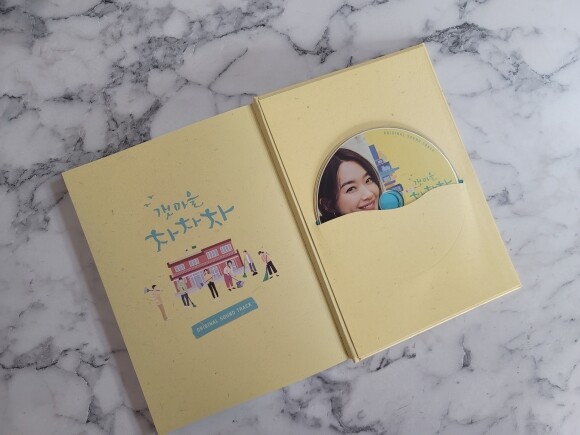 갯마을
차차차
ORIGINAL SOUND TRACK
ORIGINAL SOUND TRACK
갯마을
차차차